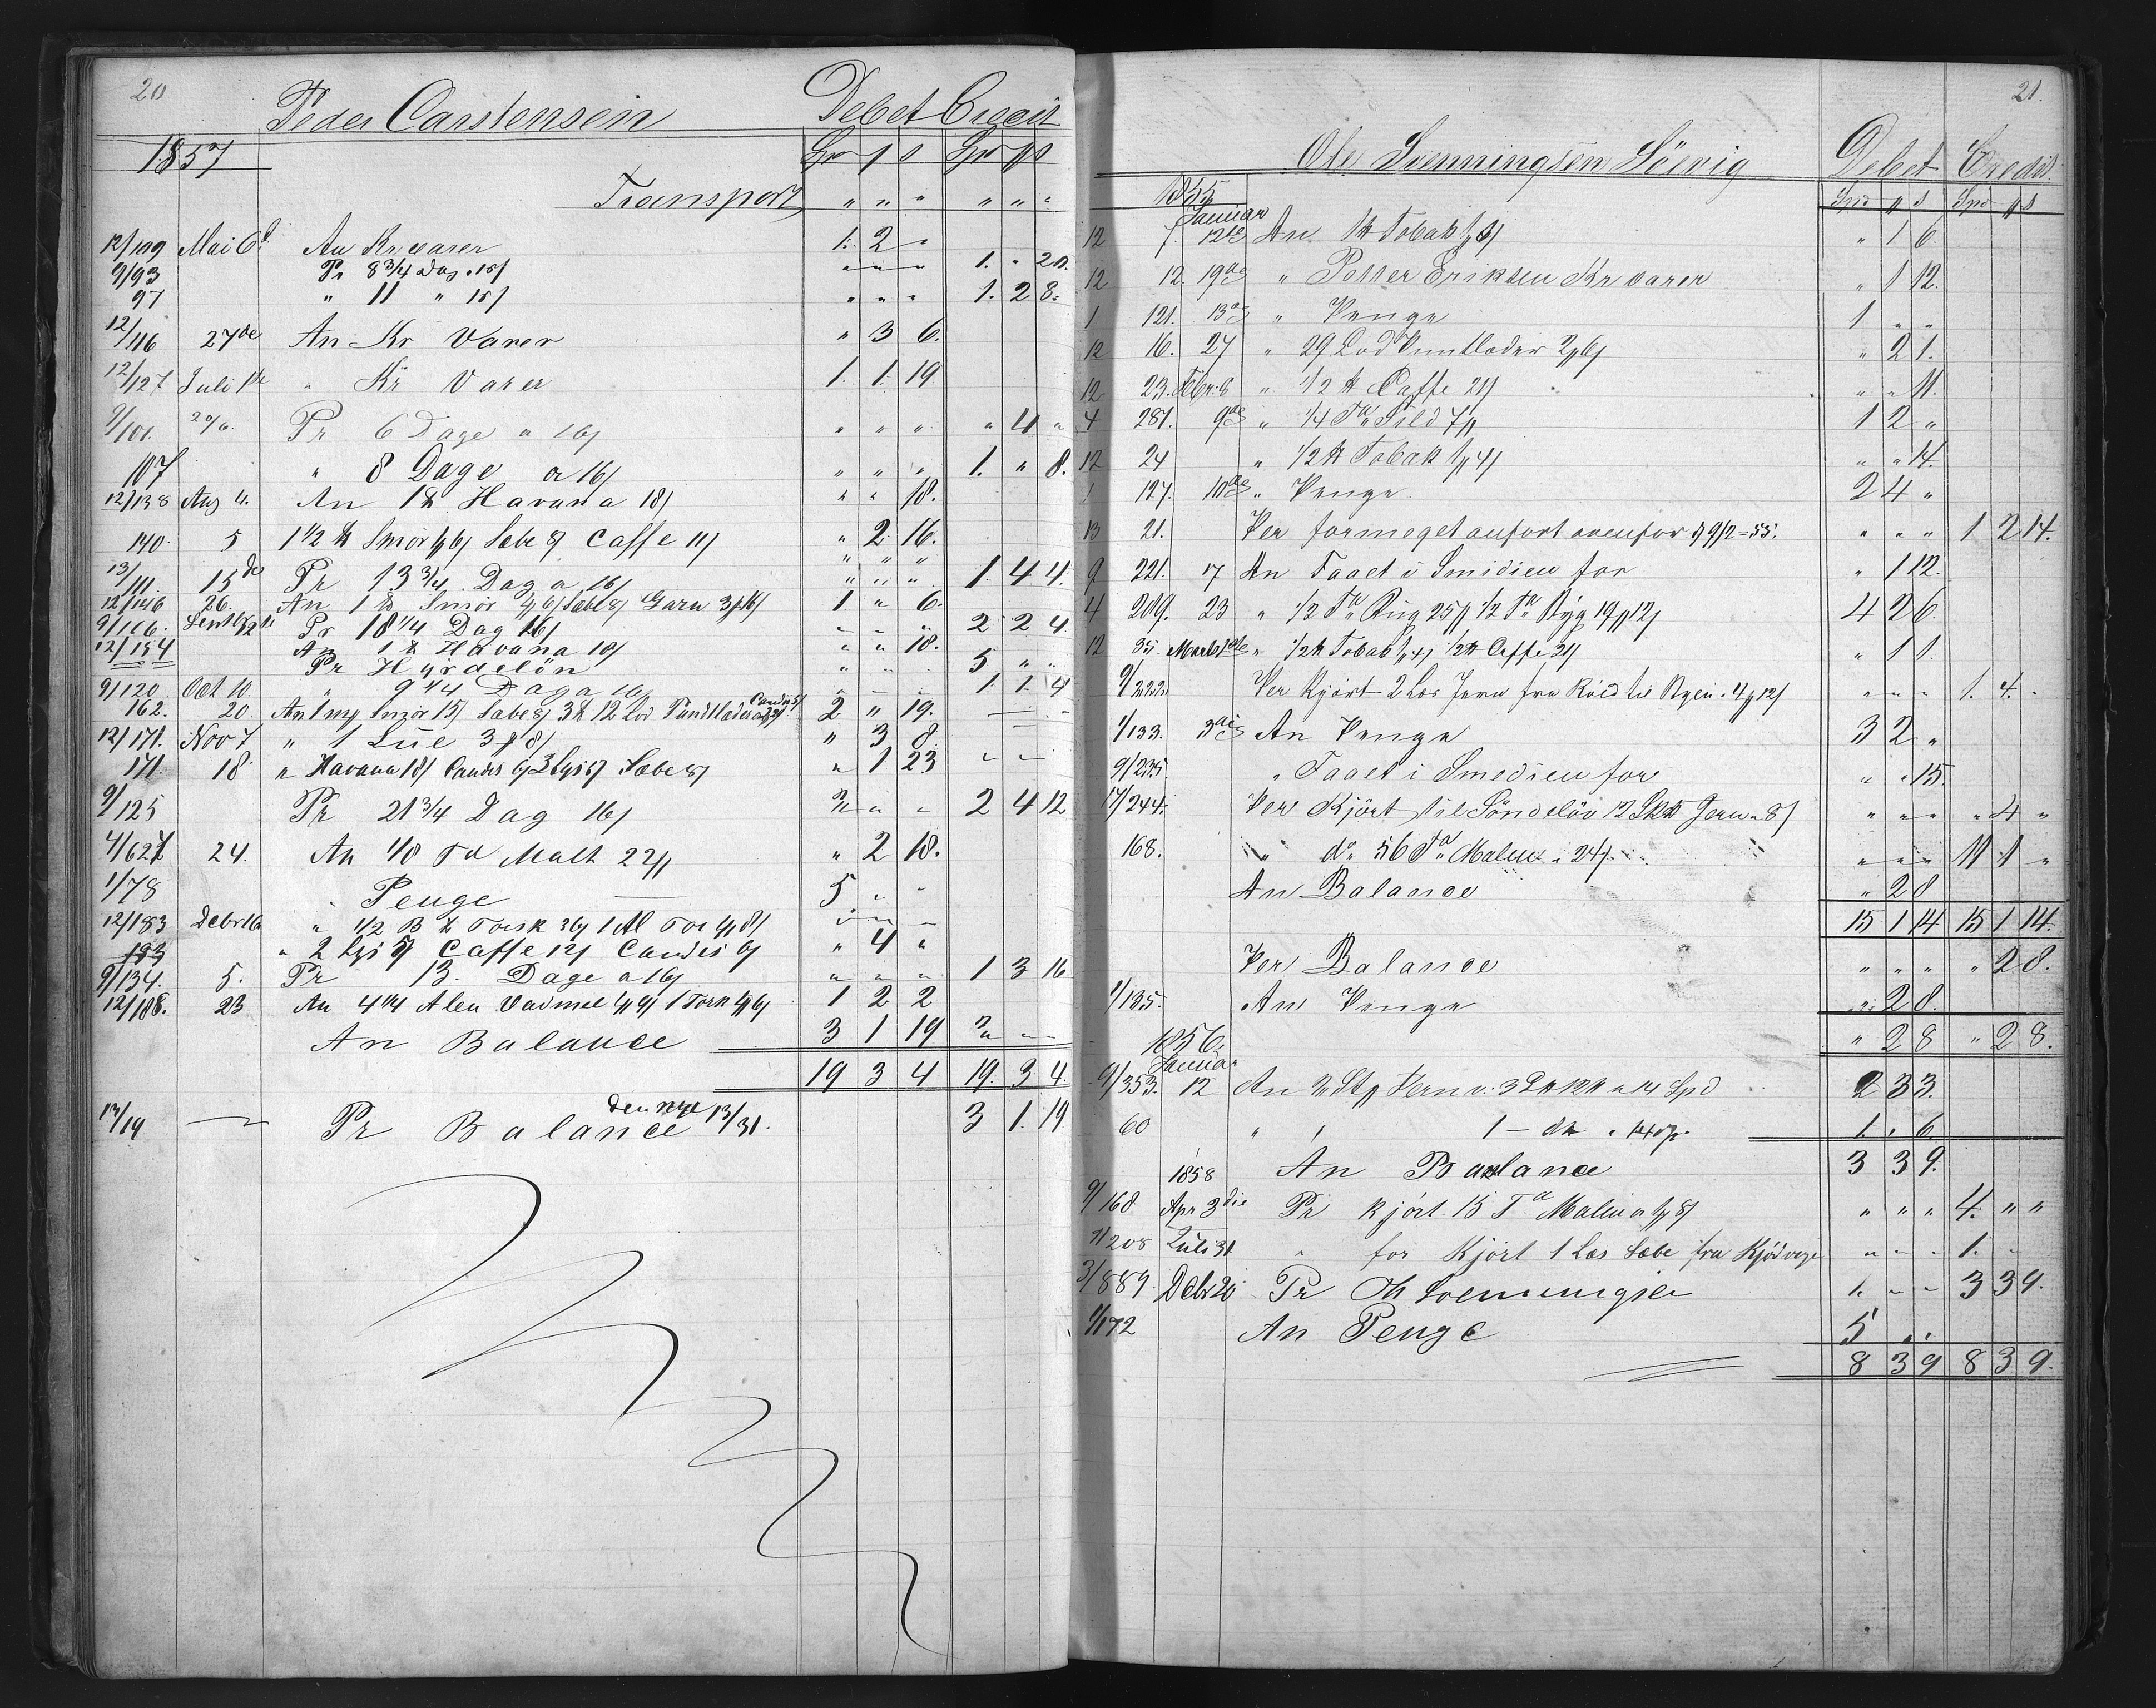 20
Peder Carstensen Debet Credit
1857
Transport " " " " " "
12/109 Mai 6 An Kr varer 1. 2 "
9/93 Pr 8 3/4 Dag " " " 1. " 20.
97 " 11 " " " " 1. 2 8.
12/116 27de An Kr Varer " 3 6.
12/127 Juli " Kr Varer 1. 1. 19
9/101. Pr 6 Dage a 16 " " " " 4 "
107 " 8 Dage a 16 " " " 1. " 8.
12/138 Aug 4. An 1 Havana 18 " " 18.
140 5 1 1/2 Smör Sæbe 8 Caffe 11 " 2 16.
13/111. 15de Pr 13 3/4 Dag a 16 " " " 1. 4 4.
12/146 26. An 1 Smör Sæbe 8 Garn 1 " 6.
9/116. Pr 18 1/4 Dag 16 " " " 2 2 4.
12/154 An 1 Havana 18 " " 18.
Pr Hyrdelön " " " 5 " "
9/120 Oct 10. " 9 1/4 Dag a 16 " " " 1. 1. 4
162. 20. An Smör 15 Sæbe 8 12 Lod Pundlæder 2 " 19.
12/171. Nov 7 " 1 Lue " 3 8
171 18 " Havana 18 Candis 6 Sæbe 8 " 1 23
9/125 Pr 21 3/4 Dag 16 " " " 2 4 12
4/627 24. An 1/8 Td Malt 22 " 2 18.
1/78 " Penge 5 " "
12/183 Debr 16 " 1/2 Torsk
183 " 2 Lys 5 Caffe 12 Candis 6 " 4 "
9/134. 5. Pr 13. Dage a 16 " " " 1 3 16
12/188. 23 An 4 1/4 Alen Vadmel 1 Torsk 1 2 2
An Balance 3 1 19 " " "
19 3 4 19. 3 4.
13/19 Pr Balance den nye 13/31. 3 1. 19
21.
Ole Svenningsen Debet Credit
1855
Januar
12 7. 12te An Tobak " 1 6.
12 12. 19de " Petter Eriksen Kr varer " 1 12.
1 121. 13de " Penge 1 " "
12 16. 27 " 29 Lod Pundlæder " 2 1.
12 23. Febr. 6 " 1/2 Caffe 21 " " 11.
4 281. 9de " 1/4 Td Sild 7 1 2 "
12 24 " 1/2 Tobak " " 14.
1 127. 10de " Penge 2 4 "
13 21. Per formeget anfört ovenfor 9/2-55. " " " 1 2 14.
9 221. 17 An Taget i Smidien for " 1 12.
4 209. 23 " 1/2 Td Rug 25 1/2 Td Byg 19 12 4 2 6.
12 35. Marts " 1/2 Tobak 1/2 Caffe 21 " 1 1.
9/222. Per Kjört 2 Læs Jern fra 12 " " " 1. 4. "
1/133. 3die An Penge 3 2 "
9/235. " Taget i Smedien for " " 15.
17/244. Per Kjört til Söndelöv 12 Jern 8 " " " " 4 "
168. " do 56 Td Malm a 24 " " " 11 1 "
An Balance " 2 8
15 1 14 15 1 14.
Per Balance " " " " 2 8.
1/135. An Penge " 2 8.
" 2 8 " 2 8.
1856.
Januar
9/353. 12 An Jern 14 Spd 2 3 3.
60 " 1 1. " 6
An Balance 3 3 9.
1858
9/168 Apr 3die Pr kjört 15 Td Malm " " " 4. " "
9/208 Juli 31. " for Kjört 1 Læs Sæbe fra " " " 1. " "
3/889. Debr 20 Pr " " " 3 3 9.
1/172 An Penge 5 " "
8 3 9 8 3 9.